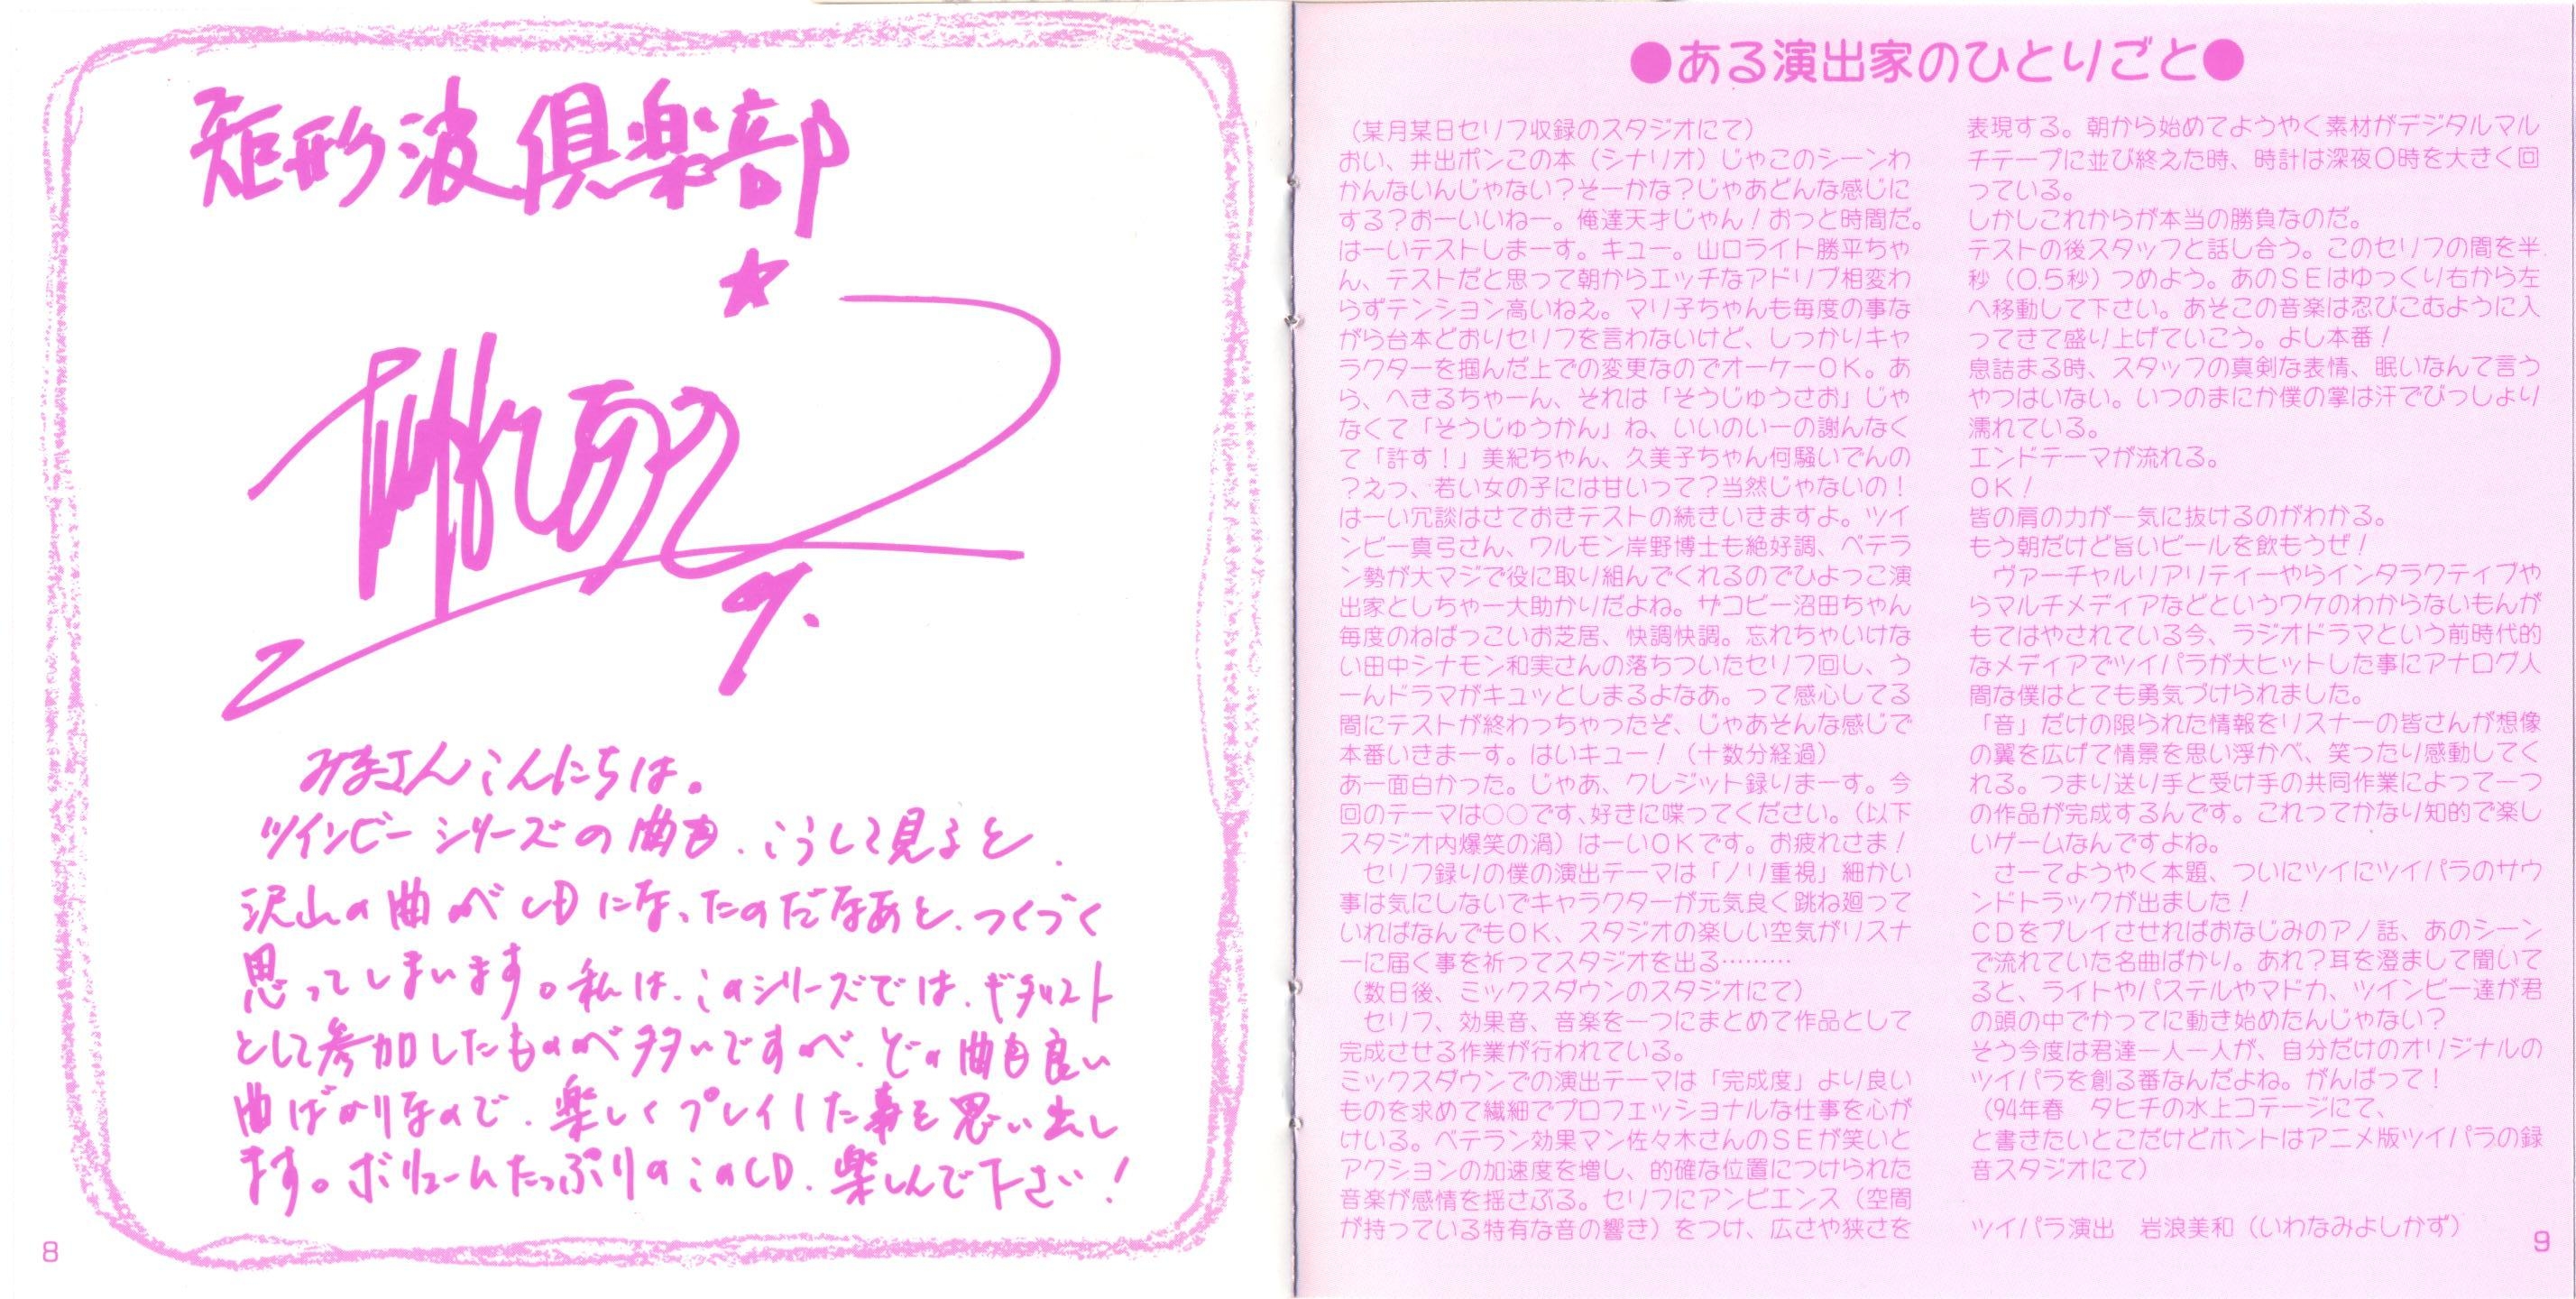 矩形波倶楽部
みなさんこんにちは。
ツインビーシリーズの曲も、こうして見ると、
沢山の曲がCDになったのだなあと、つくづく
思ってしまいます。私は、このシリーズでは、ギタリスト
として参加したものが多いですが、どの曲も良い
曲ばかりなので、楽しくプレイした事を思い出し
ます。ボリュームたっぷりのこのCD、楽しんで下さい!
8
●ある演出家のひとりごと●
(某月某日セリフ収録のスタジオにて)
おい、井出ポンこの本(シナリオ)じゃこのシーンわ
かんないんじゃない?そーかな?じゃあどんな感じに
する?おーいいねー。俺達天才じゃん!おっと時間だ。
はーいテストしまーす。キュー。山口ライト勝平ちゃ
ん、テストだと思って朝からエッチなアドリブ相変わ
らずテンション高いねえ。マリ子ちゃんも毎度の事な
がら台本どおりセリフを言わないけど、しっかりキャ
ラクターを掴んだ上での変更なのでオーケーOK。あ
ら、へきるちゃーん、それは「そうじゅうさお」じゃ
なくて「そうじゅうかん」ね、いいのいーの謝んなく
て「許す!」美紀ちゃん、久美子ちゃん何騒いでんの
?えっ、若い女の子には甘いって?当然じゃないの!
はーい冗談はさておきテストの続きいきますよ。ツイ
ンビー真弓さん、ワルモン岸野博士も絶好調、ベテラ
ン勢が大マジで役に取り組んでくれるのでひよっこ演
出家としちゃー大助かりだよね。ザコビー沼田ちゃん
毎度のねばっこいお芝居、快調快調。忘れちゃいけな
い田中シナモン和実さんの落ちついたセリフ回し、う
ーんドラマがキュッとしまるよなあ。って感心してる
間にテストが終わっちゃったぞ、じゃあそんな感じで
本番いきまーす。はいキュー!(十数分経過)
あー面白かった。じゃあ、クレジット録りまーす。今
回のテーマは○○です、好きに喋ってください。(以下
スタジオ内爆笑の渦)はーいOKです。お疲れさま!
　セリフ録りの僕の演出テーマは「ノリ重視」細かい
事は気にしないでキャラクターが元気良く跳ね廻って
いればなんでもOK、スタジオの楽しい空気がリスナ
ーに届く事を祈ってスタジオを出る………
(数日後、ミックスダウンのスタジオにて)
　セリフ、効果音、音楽を一つにまとめて作品として
完成させる作業が行われている。
ミックスダウンでの演出テーマは「完成度」より良い
ものを求めて繊細でプロフェッショナルな仕事を心が
けいる。ベテラン効果マン佐々木さんのSEが笑いと
アクションの加速度を増し、的確な位置につけられた
音楽が感情を揺さぶる。セリフにアンビエンス(空間
が持っている特有な音の響き)をつけ、広さや狭さを
表現する。朝から始めてようやく素材がデジタルマル
チテープに並び終えた時、時計は深夜〇時を大きく回
っている。
しかしこれからが本当の勝負なのだ。
テストの後スタッフと話し合う。このセリフの間を半
秒(0.5秒)つめよう。あのSEはゆっくり右から左
へ移動して下さい。あそこの音楽は忍びこむように入
ってきて盛り上げていこう。よし本番!
息詰まる時、スタッフの真剣な表情、眠いなんて言う
やつはいない。いつのまにか僕の掌は汗でびっしょり
濡れている。
エンドテーマが流れる。
OK!
皆の肩の力が一気に抜けるのがわかる。
もう朝だけど旨いビールを飲もうぜ!
　ヴァーチャルリアリティーやらインタラクティブや
らマルチメディアなどというワケのわからないもんが
もてはやされている今、ラジオドラマという前時代的
なメディアでツイパラが大ヒットした事にアナログ人
間な僕はとても勇気づけられました。
「音」だけの限られた情報をリスナーの皆さんが想像
の翼を広げて情景を思い浮かべ、笑ったり感動してく
れる。つまり送り手と受け手の共同作業によって一つ
の作品が完成するんです。これってかなり知的で楽し
いゲームなんですよね。
　さーてようやく本題、ついにツイにツイパラのサウ
ンドトラックが出ました!
CDをプレイさせればおなじみのアノ話、あのシーン
で流れていた名曲ばかり。あれ?耳を澄まして聞いて
ると、ライトやパステルやマドカ、ツインビー達が君
の頭の中でかってに動き始めたんじゃない?
そう今度は君達一人一人が、自分だけのオリジナルの
ツイパラを創る番なんだよね。がんばって!
(94年春　タヒチの水上コテージにて、
と書きたいとこだけどホントはアニメ版ツイパラの録
音スタジオにて)
ツイパラ演出　岩浪美和(いわなみよしかず)
9